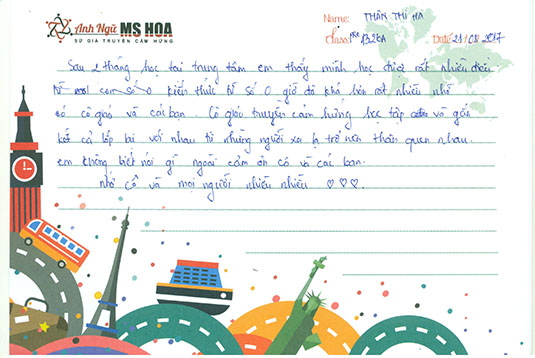 Anh Ngữ MS HOA
SỨ GIẢ TRUYỀN CẢM HỨNG
Name: THÂN THỊ HÀ
Class: Pre B26A Date: 21/01/2017
Sau 2 tháng học tại trung tâm em thấy mình học được rất nhiều điều.
Từ một con số 0 kiến thức từ số 0 giờ đã khá hơn rất nhiều nhờ
có cô giáo và các bạn. Cô giáo truyền cảm hứng học tập và gắn
kết cả lớp lại với nhau từ những người xa lạ trở nên thân quen nhau.
em không biết nói gì ngoài cảm ơn cô và các bạn.
nhớ cô và mọi người nhiều nhiều ♡♡♡.